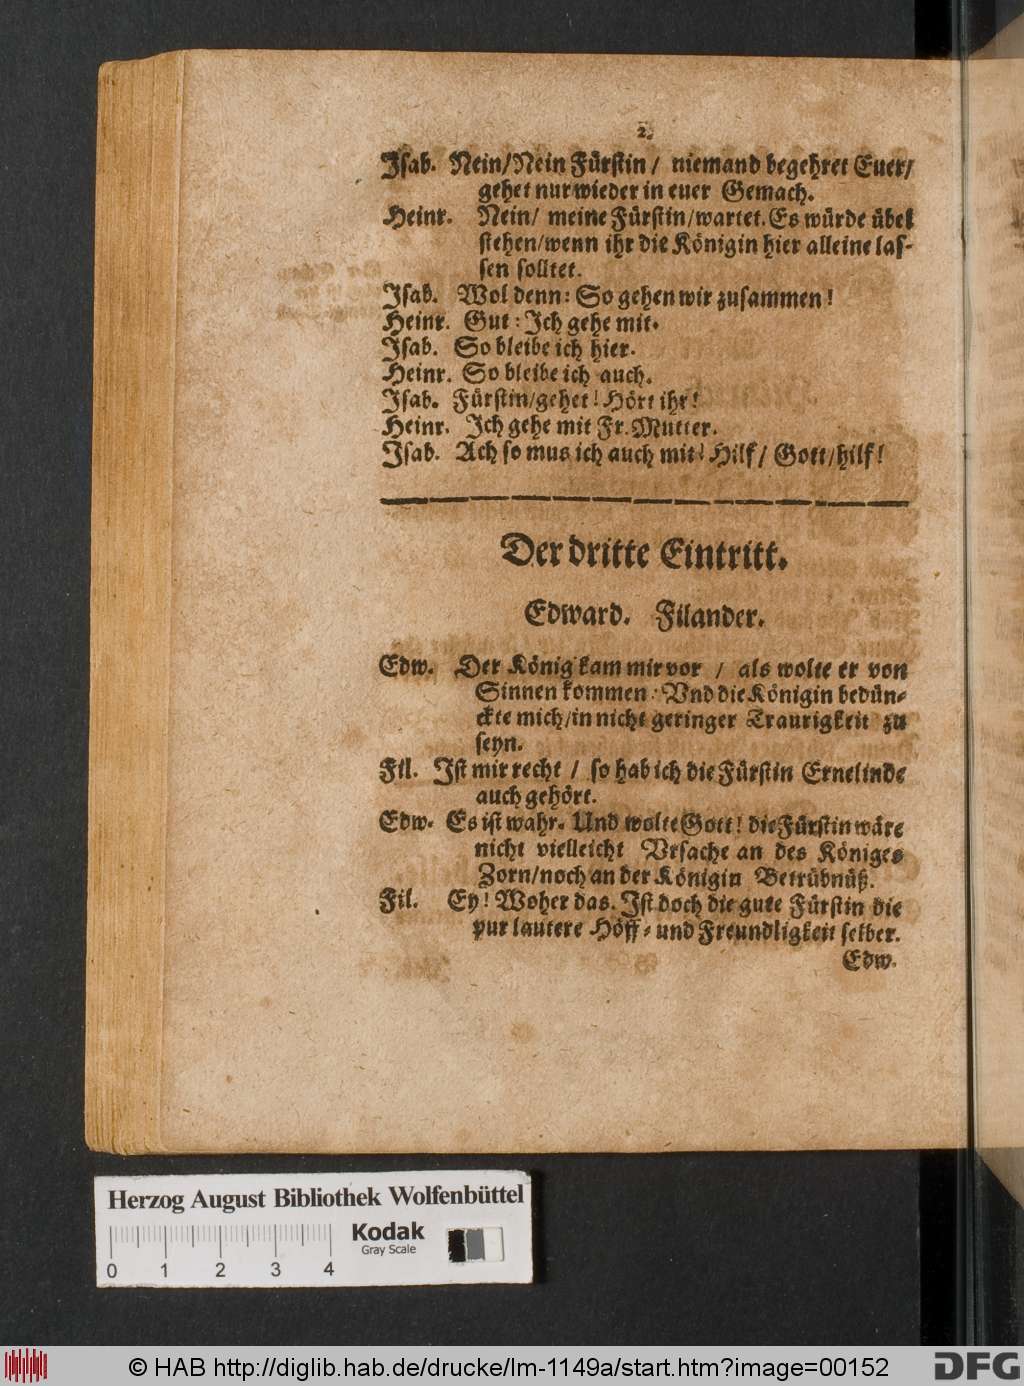 2.
Isab. Nein/Nein Fürstin / niemand begehret Euer/
gehet nur wieder in euer Gemach.
Heinr. Nein/ meine Fürstin/wartet. Es würde übel
stehen/wenn ihr die Königin hier alleine las-
sen solltet.
Isab. Wol denn: So gehen wir zusammen!
Heinr. Gut: Ich gehe mit.
Isab. So bleibe ich hier.
Heinr. So bleibe ich auch.
Isab. Fürstin/gehet! Hört ihr!
Heinr. Ich gehe mit Fr. Mutter.
Isab. Ach so mus ich auch mit! Hilf/ Gott/hilf!
Der dritte Eintritt.
Edward. Filander.
Edw. Der König kam mir vor / als wolte er von
Sinnen kommen: Vnd die Königin bedün-
ckte mich/in nicht geringer Traurigkeit zu
seyn.
Fil. Ist mir recht / so hab ich die Fürstin Ernelinde
auch gehört.
Edw. Es ist wahr. Und wolte Gott! die Fürstin wäre
nicht vielleicht Vrsache an des Königes
Zorn/noch an der Königin Betrübnüß.
Fil. Ey! Woher das. Ist doch die gute Fürstin die
pur lautere Höff- und Freundligkeit selber.
Edw.
Herzog August Bibliothek Wolfenbüttel
Kodak
Gray Scale
0 1 2 3 4
© HAB http://diglib.hab.de/drucke/lm-1149a/start.htm?image=00152
DFG